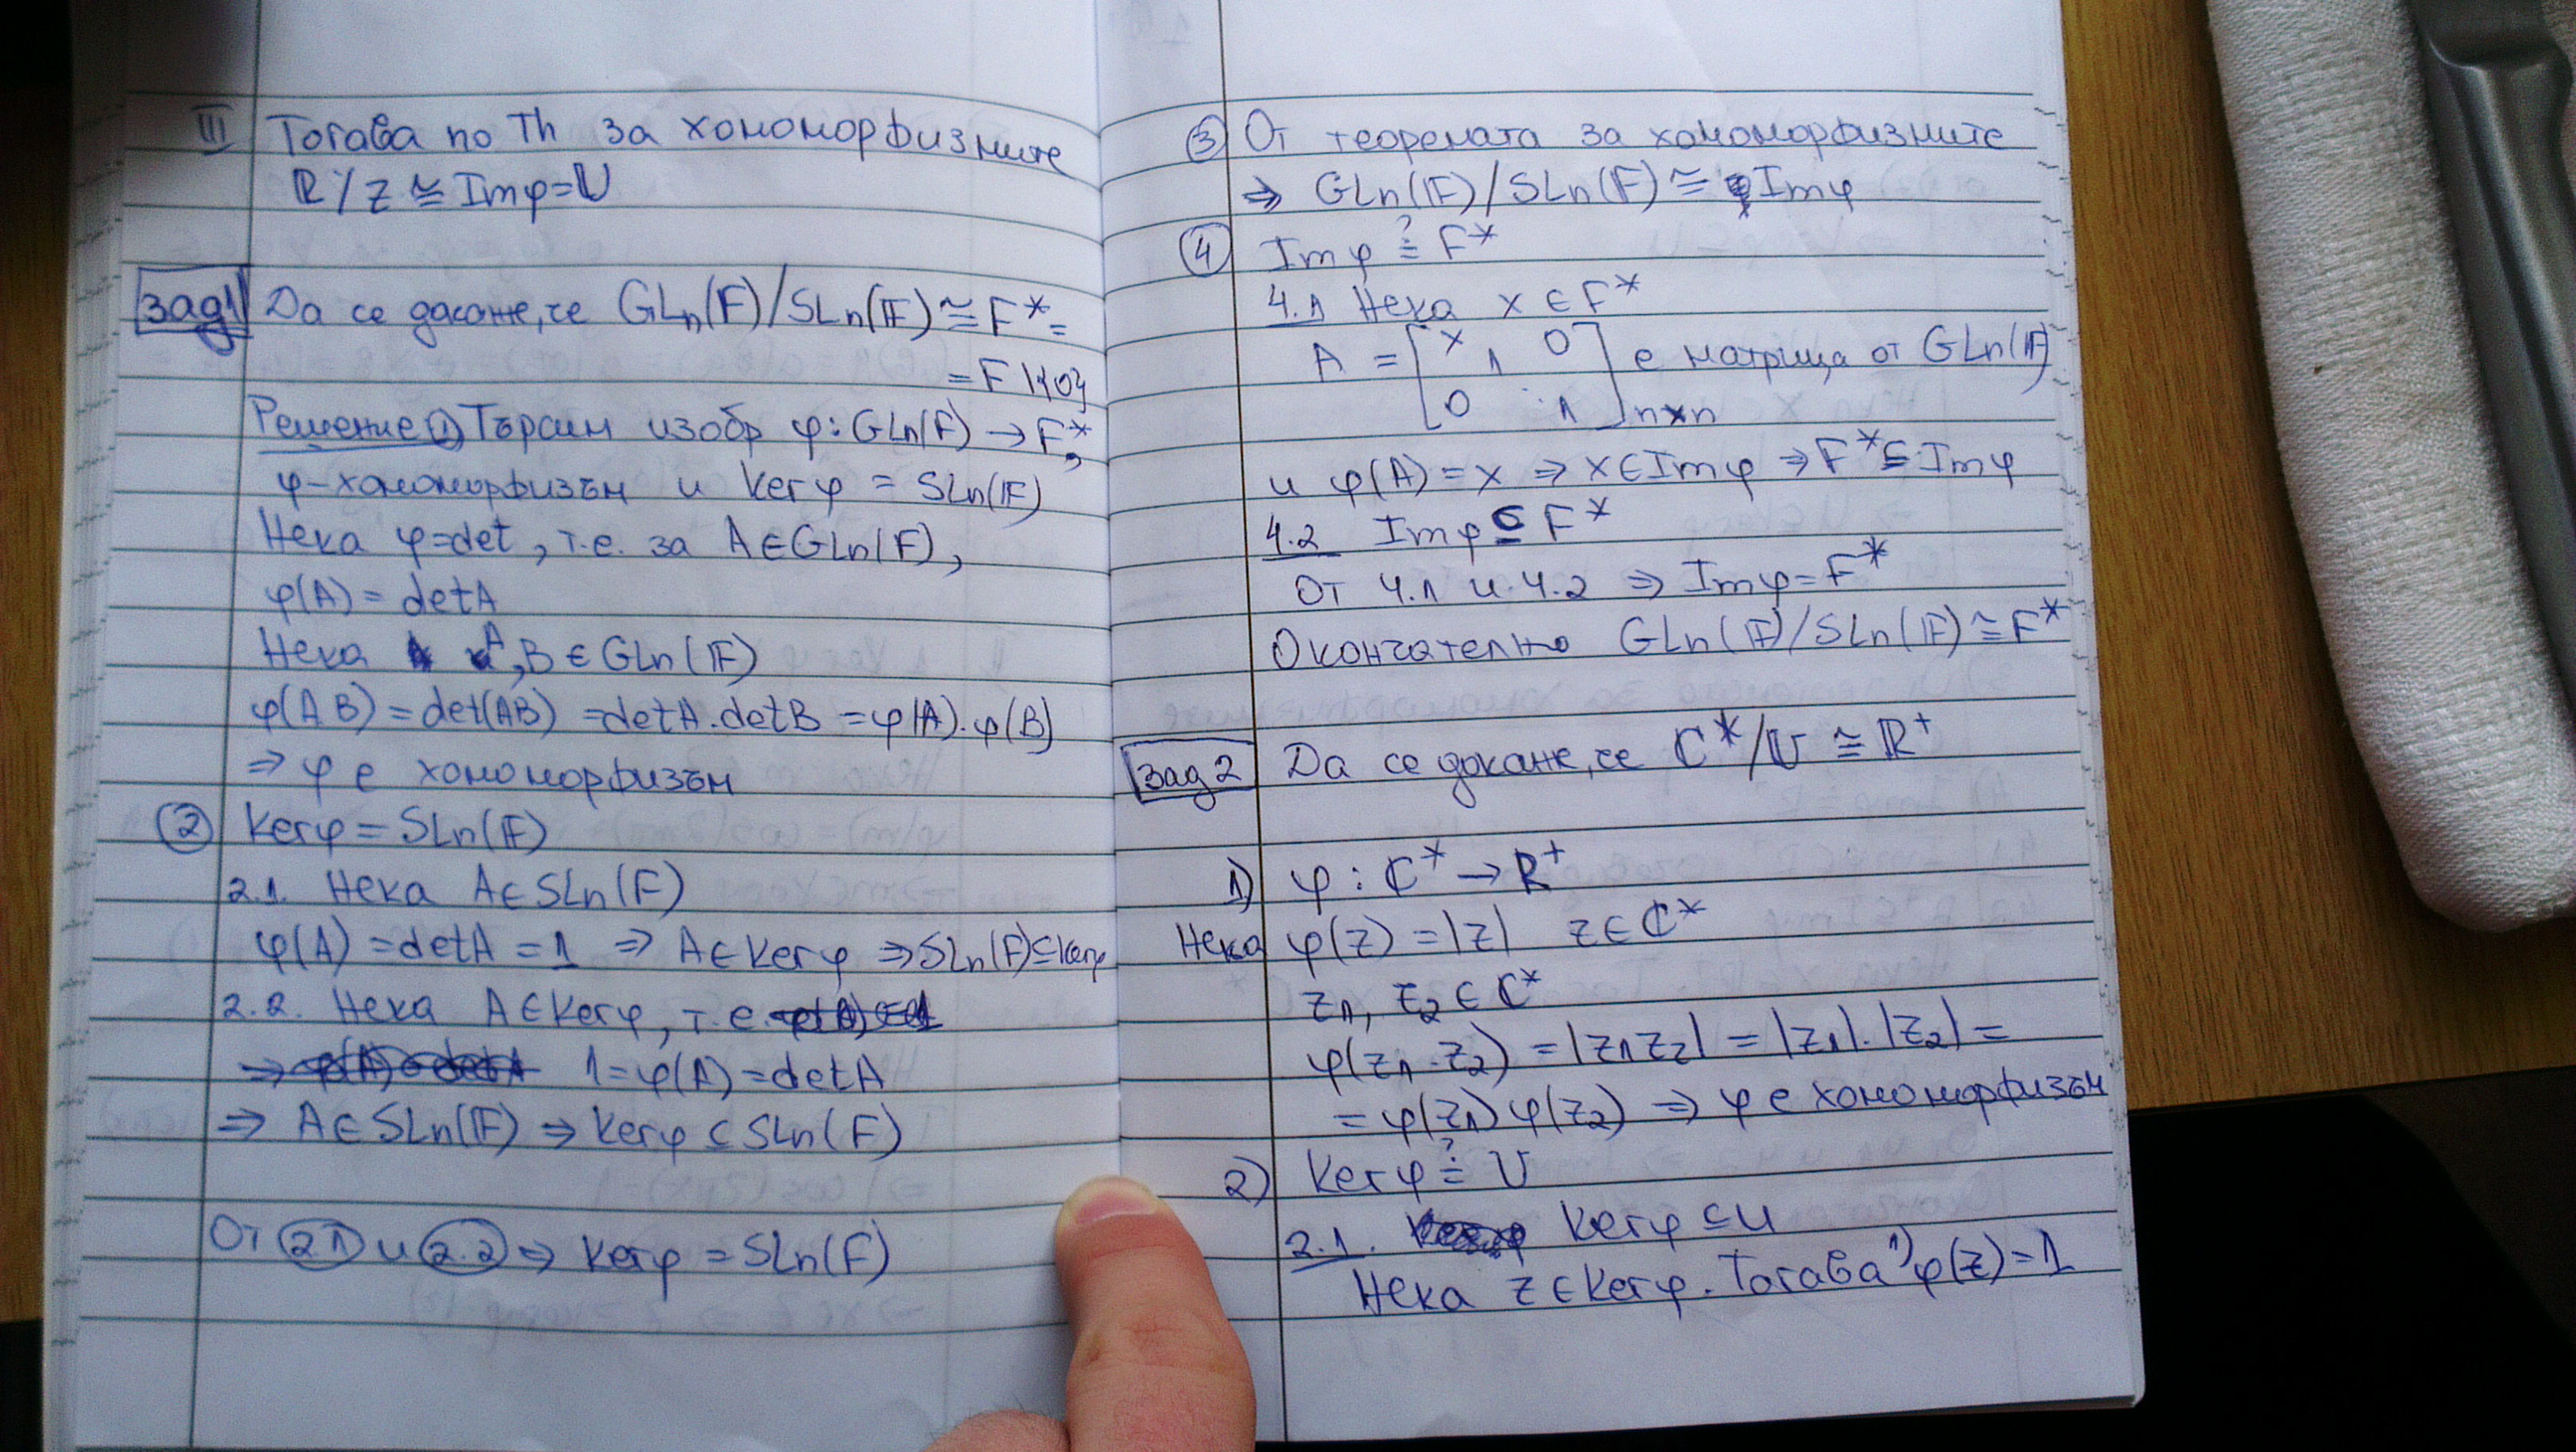 III Тогава по Th за хомоморфизмите
ℝ/Z ≅ Imφ = U
зад1 Да се докаже, че GLn(F)/SLn(F) ≅ F* =
= F\{0}
Решение ① Търсим изобр φ: GLn(F) → F*,
φ-хомоморфизъм и Kerφ = SLn(F)
Нека φ=det, т.е. за A∈GLn(F),
φ(A) = detA
Нека A,B ∈ GLn(F)
φ(AB) = det(AB) = detA.detB = φ(A).φ(B)
⇒ φ е хомоморфизъм
② Kerφ = SLn(F)
2.1. Нека A∈SLn(F)
φ(A) = detA = 1 ⇒ A∈Kerφ ⇒ SLn(F)⊆Kerφ
2.2. Нека A∈Kerφ, т.е.
1=φ(A)=detA
⇒ A∈SLn(F) ⇒ Kerφ ⊆ SLn(F)
От 2.1 и 2.2 ⇒ Kerφ = SLn(F)
③ От теоремата за хомоморфизмите
⇒ GLn(F)/SLn(F) ≅ Imφ
④ Imφ ≟ F*
4.1 Нека x ∈ F*
A = [x 1 0
0 ⋱ 1] n×n е матрица от GLn(F)
и φ(A) = x ⇒ x∈Imφ ⇒ F* ⊆ Imφ
4.2 Imφ ⊆ F*
От 4.1 и 4.2 ⇒ Imφ = F*
Окончателно GLn(F)/SLn(F) ≅ F*
зад 2 Да се докаже, че ℂ*/U ≅ ℝ⁺
1) φ: ℂ* → ℝ⁺
Нека φ(z) = |z| z∈ℂ*
z1, z2 ∈ ℂ*
φ(z1.z2) = |z1z2| = |z1|.|z2| =
= φ(z1)φ(z2) ⇒ φ е хомоморфизъм
2) Kerφ ≟ U
2.1. Kerφ ⊆ U
Нека z∈Kerφ. Тогава 1) φ(z)=1